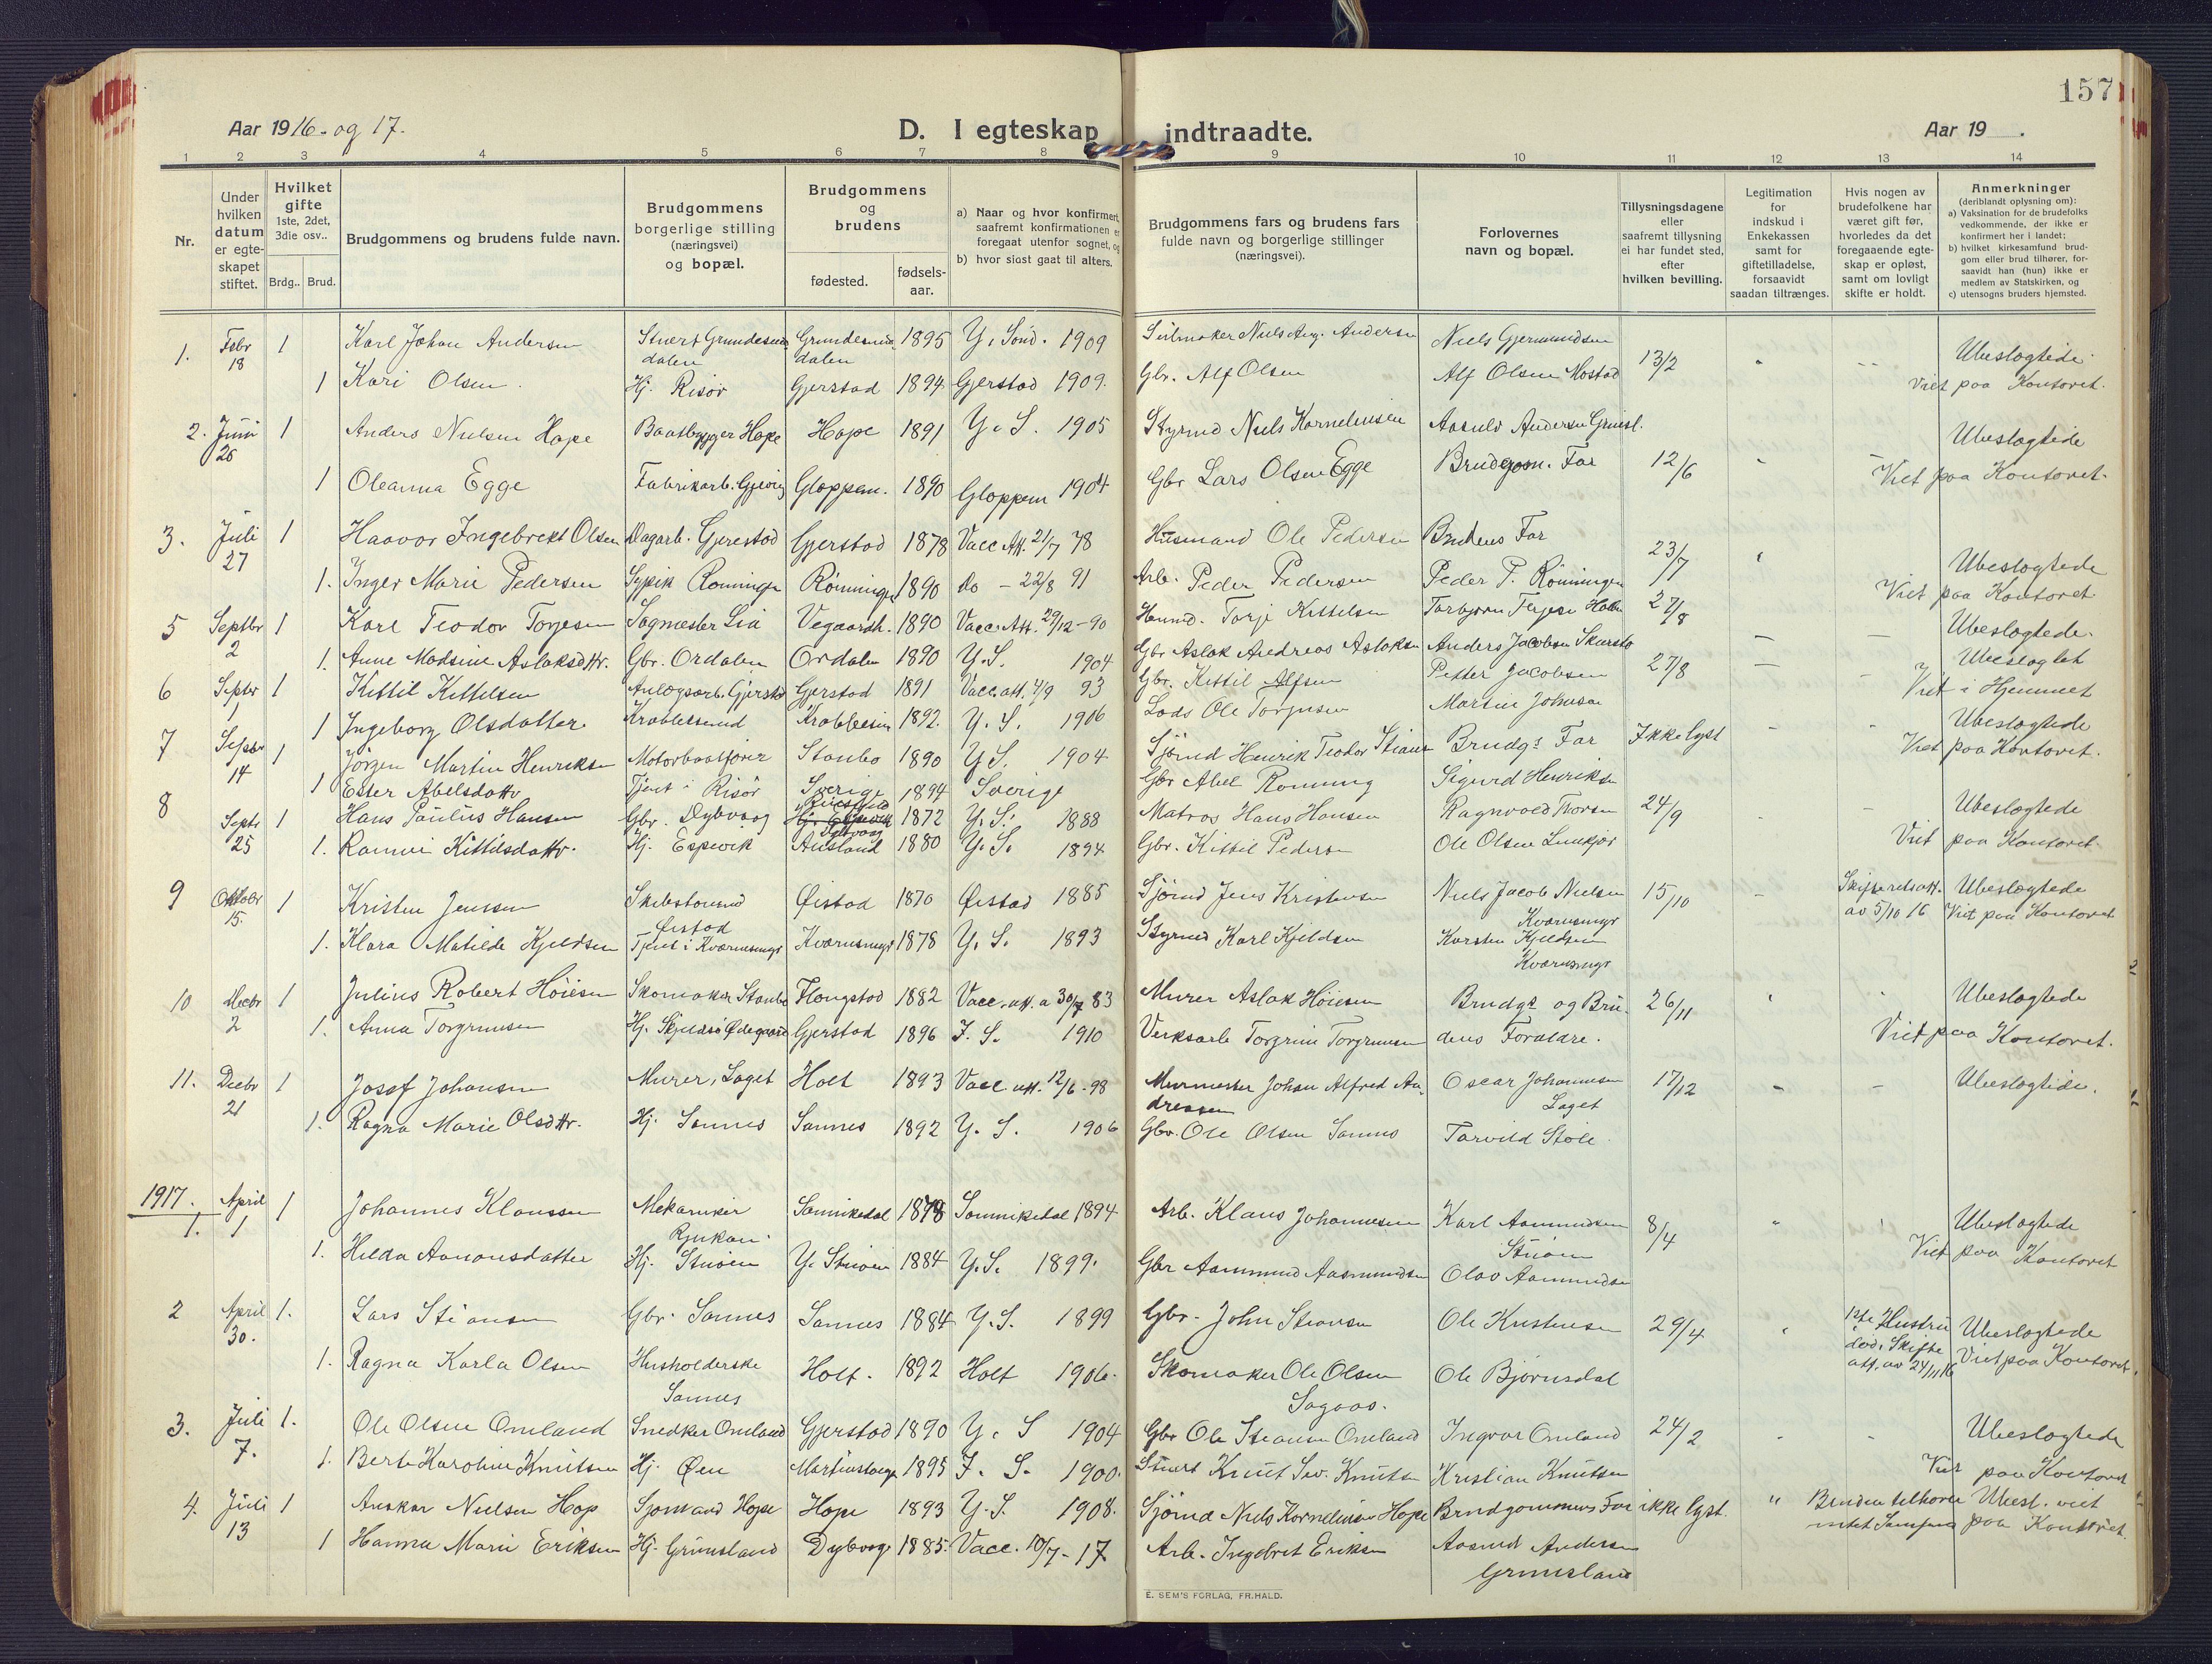 157
Aar 1916 og 17.
D. I egteskap indtraadte.
Aar 19 .
1 2 3 4 5 6 7 8 9 10 11 12 13 14
Nr.
Under hvilken datum er egte- skapet stiftet.
Hvilket gifte 1ste, 2det, 3die osv..
Brdg.. Brud.
Brudgommens og brudens fulde navn.
Brudgommens borgerlige stilling (næringsvei) og bopæl.
Brudgommens og brudens
fødested.
fødsels- aar.
a) Naar og hvor konfirmert, saafremt konfirmationen er foregaat utenfor sognet, og
b) hvor sidst gaat til alters.
Brudgommens fars og brudens fars fulde navn og borgerlige stillinger (næringsvei).
Forlovernes navn og bopæl.
Tillysningsdagene eller saafremt tillysning ei har fundet sted, efter hvilken bevilling.
Legitimation for indskud i Enkekassen samt for giftetilladelse, forsaavidt saadan tiltrænges.
Hvis nogen av brudefolkene har været gift før, hvorledes da det foregaaende egte- skap er opløst, samt om lovligt skifte er holdt.
Anmerkninger (deriblandt oplysning om):
a) Vaksination for de brudefolks vedkommende, der ikke er konfirmert her i landet;
b) hvilket kirkesamfund brud- gom eller brud tilhører, for- saavidt han (hun) ikke er medlem av Statskirken, og
c) utensogns bruders hjemsted.
1. Febr 18 1 Karl Johan Andersen 1895 Y. Sönd. 1909 Niels Gjermundsen 13/2 Ubeslægtede
1 Kari Olsen Hj. Risör Gjerstad 1894 Gjerstad 1909. Gbr. Alf Olsen Alf Olsen Mostad Viet paa Kontoret.
2. Juni 26 1 Anders Nielsen Hope Baatbygger Hope Hope 1891 Y. S. 1905 Niels Kornelinsen 12/6 Ubeslægtede
1 Oleanna Egge Fabrikarb. Gjövig Gloppen. 1890 Gloppen 1904 Gbr Lars Olsen Egge Brudgom. Far Viet paa Kontoret.
3. Juli 27 1 Haavor Ingebrekt Olsen Dagarb. Gjerestad Gjerstad 1878 Vacc. Att. 21/7 78 Husmand Ole Pedersen Brudens Far 23/7 Ubeslægtede
1. Inger Marie Pedersen Rönningen 1890 do - 22/8 91 Arb. Peder Pedersen Peder P. Rönningen Viet paa Kontoret
5 Septbr 2 1 Karl Teodor Torjesen Sagmester Lia Vegaardsh. 1890 Vacc. Att. 29/12-90 Torje Kittelsen 27/8 Ubeslægtede.
1. Anne Madsine Aslaksdttr. Gbr. Ordalen Ordalen 1890 Y.S. 1904 Gbr Aslak Andreas Aslaksen Anders Jacobsen
6 Septbr 1 1 Kittil Kittelsen Anlægsarb. Gjerstad Gjerstad 1891 Vacc. att. 4/9 93 Gbr. Kittil Alfsen Petter Jacobsen 27/8 Ubeslægtet
1 Ingeborg Olsdatter 1892. Y. S. 1906 Lods Ole Torjusen Martin Johnsen Viet i Hjemmet
7 Septbr 14 1 Jörgen Martin Henriksen Motorbaatförer Stanbo 1890 Y S. 1904 Sjömd Henrik Teodor Stiansen Brudgs Far Ikke lyst Ubeslægtede
1 Ester Abelsdattr Tjent i Risör Sverige 1894 Sverige Gbr Abel Ronning Sigurd Henriksen Viet paa Kontoret.
8 Septr 25 1 Hans Paulus Hansen Gbr. Dybvaag 1872 Y. S. 1888 Matros Hans Hansen Ragnvald Thorsen 24/9 Ubeslægtede
1. Kittilsdattr. Hj. Espevik Ausland 1880 Y. S. 1894 Gbr. Kittil Pedersen Ole Olsen Viet paa Kontoret
9 Oktobr 15. 1 Kristen Jenssen Öistad Öistad 1870 Öistad 1885 Sjömd Jens Kristensen Niels Jacob Nielsen Kværnsmyr 15/10 Skifteretsatt. av 5/10 16 Ubeslægtede Viet paa Kontoret
1. Klara Matilde Kjeldsen Tjent i Kværnsmyr Kværnsmyr 1878 Y. S. 1893 Styrmd Karl Kjeldsen Karsten Kjeldsen Kværnsmyr
10 Decbr 2 1 Julius Robert Höiesen Skomaker Stanbo Flangstad 1882 Vacc. att. a 30/7 83 Murer Aslak Höiesen Brudgs og Bru- 26/11 Ubeslægtede
1. Anna Torgrimsen Gjerstad 1896 I. S. 1910 Verksarb Torgrim Torgrimsen dens Forældre. Viet paa Kontoret.
11. Decbr 21 1 Josef Johansen Murer, Laget Holt 1893 Vacc att. 12/6-98 Murmester Johan Alfred An- dreasen Oscar Johannesen Laget 17/12 Ubeslægtede.
1. Ragna Marie Olsdttr. Hj. Sannes Sannes 1892 Y. S. 1906 Gbr. Ole Olsen Sannes Tarvild Stöle
1917. 1. April 1 1 Johannes Klaussen Mekaniker Rjukan. Sannikedal 1878 Sannikedal 1894 Arb. Klaus Johannesen Karl Aamundsen 8/4 Ubeslægtede
1. Hilda Aanonsdatter Hj. 1884 Y.S. 1899. Gbr Aasmundsen Olav Aamundsen Viet paa Kontoret
2 April 30. 1. Lars Stiansen Gbr. Sannes Sannes 1884 Y.S. 1899 Gbr. John Stiansen Ole Kristensen 29/4 1ste Hustru död. Skifte att. av 24/11 16 Ubeslægtede Viet paa Kontoret.
1. Ragna Karla Olsen Husholderske Sannes Holt. 1892 Holt 1906. Skomaker Ole Olsen Sagaas. Ole Björnsdal
3. Juli 7. 1. Ole Olsen Omland Snedker Omland Gjerstad 1890 Y. S 1904 Gbr Ole Stiansen Omland Ingvar Omland 24/2 Ubeslægtede
1. Berte Karoline Knutsen Hj. Öen 1895 I. S. 1900. Knut Sev. Knutsen Kristian Knutsen Viet paa Kontoret
4. Juli 13 1 Anskar Nielsen Hop Sjömand Hope Hope 1893 Y.S. 1908. Sjömd Niels Kornelinsen Hope Brudgommens Far ikke lyst. " Bruden tilhörer intet Samfund Ubesl. viet paa Kontoret.
1 Hanna Marie Eriksen Hj. Grimsland Dybvaag 1885. Vacc. 10/7-17 Arb. Ingebret Eriksen Aasmd Andersen Grimsland
E. SEM'S FORLAG, FR.HALD.